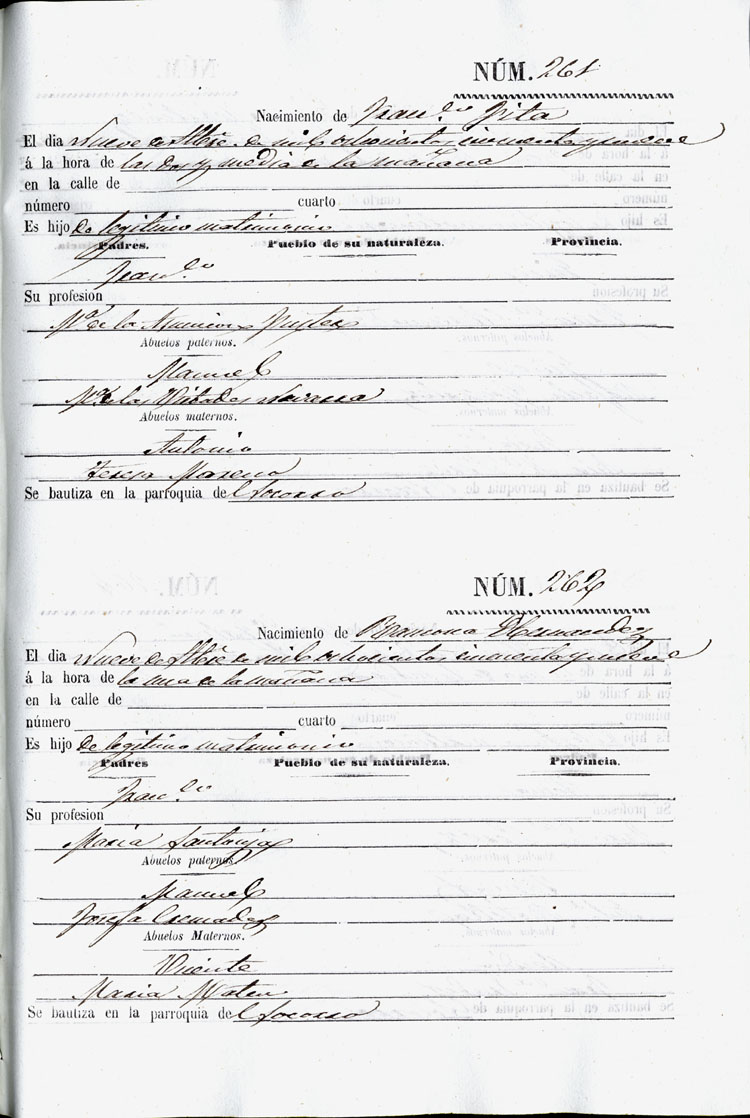 NÚM. 261
Nacimiento de Fran.co Pita
El dia Nueve de de mil ochocientos cincuenta y nueve
á la hora de las dos y media de la mañana
en la calle de
número cuarto
Es hijo de legitimo matrimonio
Padres. Pueblo de su naturaleza. Provincia.
Fran.co
Su profesion
M.a de la
Abuelos paternos.
Manuel
M.a de las Navarro
Abuelos maternos.
Antonio
Teresa Moreno
Se bautiza en la parroquia del Socorro
NÚM. 262
Nacimiento de Ramona Hernandez
El dia Nueve de de mil ochocientos cincuenta y nueve
á la hora de la una de la mañana
en la calle de
número cuarto
Es hijo de legitimo matrimonio
Padres Pueblo de su naturaleza. Provincia.
Fran.co
Su profesion
Maria Santonja
Abuelos paternos.
Manuel
Josefa Cremades
Abuelos Maternos.
Vicente
Maria Mateu
Se bautiza en la parroquia del Socorro